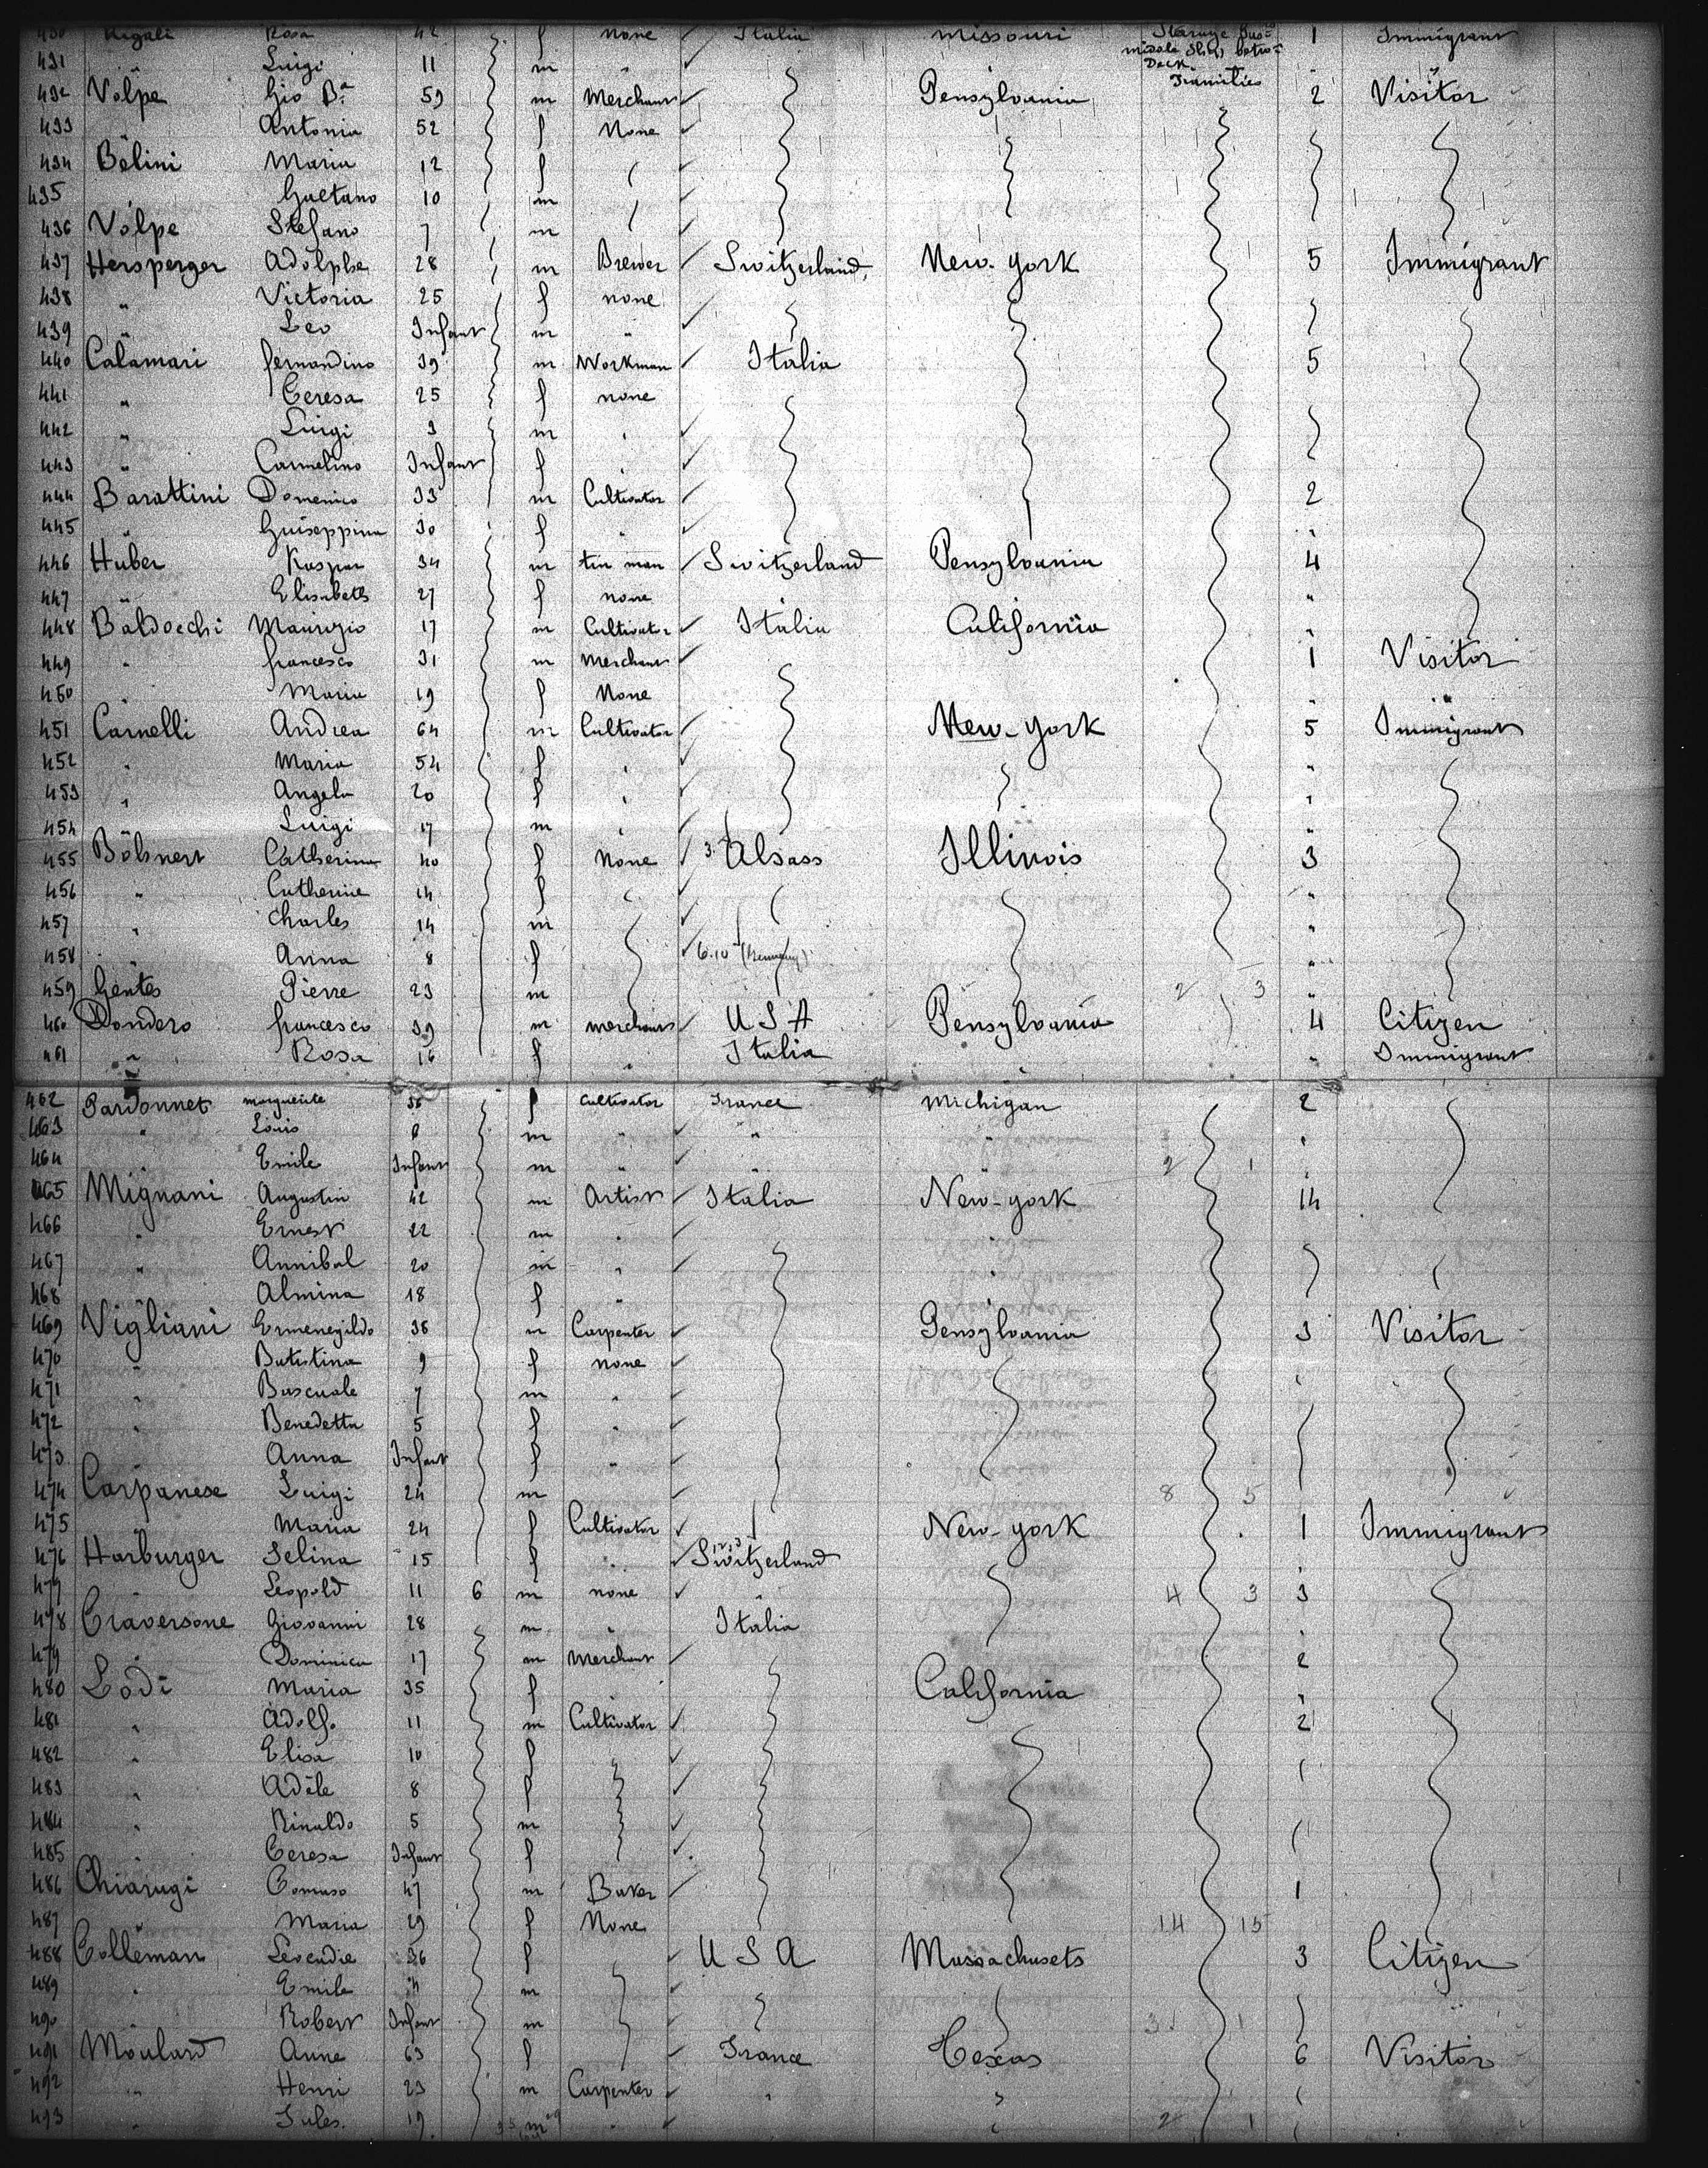 430 Rigali Rosa 42 f none Italia Missouri Steerage 1 Immigrant
431 " Luigi 11 m " middle Ship, betw= Deck. "
432 Volpe Gio Bª 59 m Merchant Pensylvania Families 2 Visitor
433 " Antonia 52 f None
434 Belini Maria 12 f
435 " Gaetano 10 m
436 Volpe Stefano 7 m
437 Hersperger Adolphe 28 m Brewer Switzerland New-York 5 Immigrant
438 " Victoria 25 f none
439 " Leo Infant m "
440 Calamari fernandino 39 m Workman Italia 5
441 " Teresa 25 f none
442 " Luigi 9 m "
443 " Carmelino Infant f "
444 Barattini Domenico 33 m Cultivator 2
445 " Guiseppina 30 f " "
446 Huber Kaspar 34 m tin man Switzerland Pensylvania 4
447 " Elisabeth 27 f none "
448 Baldocchi Maurizio 17 m Cultivator Italia California "
449 " francesco 31 m Merchant 1 Visitor
450 " Maria 19 f None " "
451 Carnelli Andrea 64 m Cultivator New-York 5 Immigrant
452 " Maria 54 f " "
453 " Angela 20 f " "
454 " Luigi 17 m " "
455 Böhnert Catherina 40 f None 3. Alsass Illinois 3
456 " Catherine 14 f "
457 " Charles 14 m "
458 " Anna 8 f 6.10 (Germany) "
459 Gentes Pierre 23 m 2 3 "
460 Dondero francesco 39 m merchant U S A Pensylvania 4 Citizen
461 " Rosa 16 f " Italia " Immigrant
462 Pardonnet marguerite 36 f Cultivator France Michigan 2
463 " Louis 6 m " " " "
464 " Emile Infant m " " 2 1 "
465 Mignani Augustin 42 m Artist Italia New-york 14
466 " Ernest 22 m " "
467 " Annibal 20 m " "
468 " Almina 18 f "
469 Vigliani Ermenegildo 36 m Carpenter Pensylvania 3 Visitor
470 " Batistina 9 f none
471 " Bascuale 7 m "
472 " Benedetta 5 f "
473 " Anna Infant f "
474 Carpanese Luigi 24 m 8 5
475 " Maria 24 f Cultivator New-york 1 Immigrant
476 Harburger Selina 15 f " Switzerland "
477 " Leopold 11 6 m none " 4 3 3
478 Traversone Giovanni 28 m " Italia
479 " Dominica 17 m Merchant 2
480 Lodi Maria 35 f California "
481 " Adolfo 11 m Cultivator 2
482 " Elisa 10 f
483 " Adele 8 f
484 " Rinaldo 5 m
485 " Teresa Infant f
486 Chiarugi Tomaso 47 m Baker 1
487 " Maria 29 f None 14 15
488 Colleman Leocadie 36 f U S A Massachusets 3 Citizen
489 " Emile 4 m
490 " Robert Infant m 3 1
491 Moulard Anne 63 f France Texas 6 Visitor
492 " Henri 23 m Carpenter " "
493 " Jules. 19 m " " 2 1